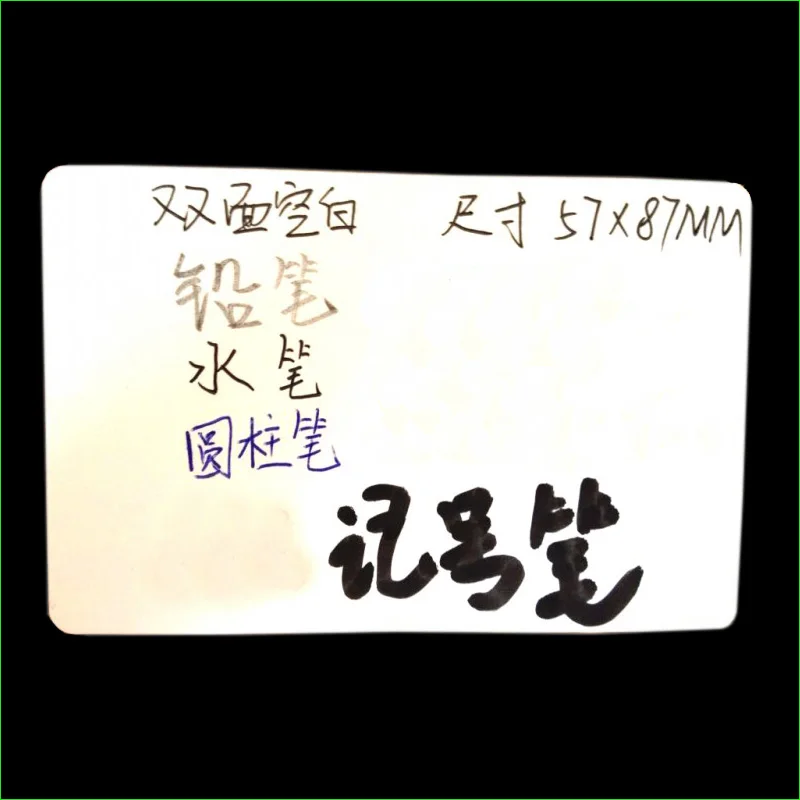 双面空白 尺寸 57X87MM
铅笔
水笔
圆柱笔
记号笔